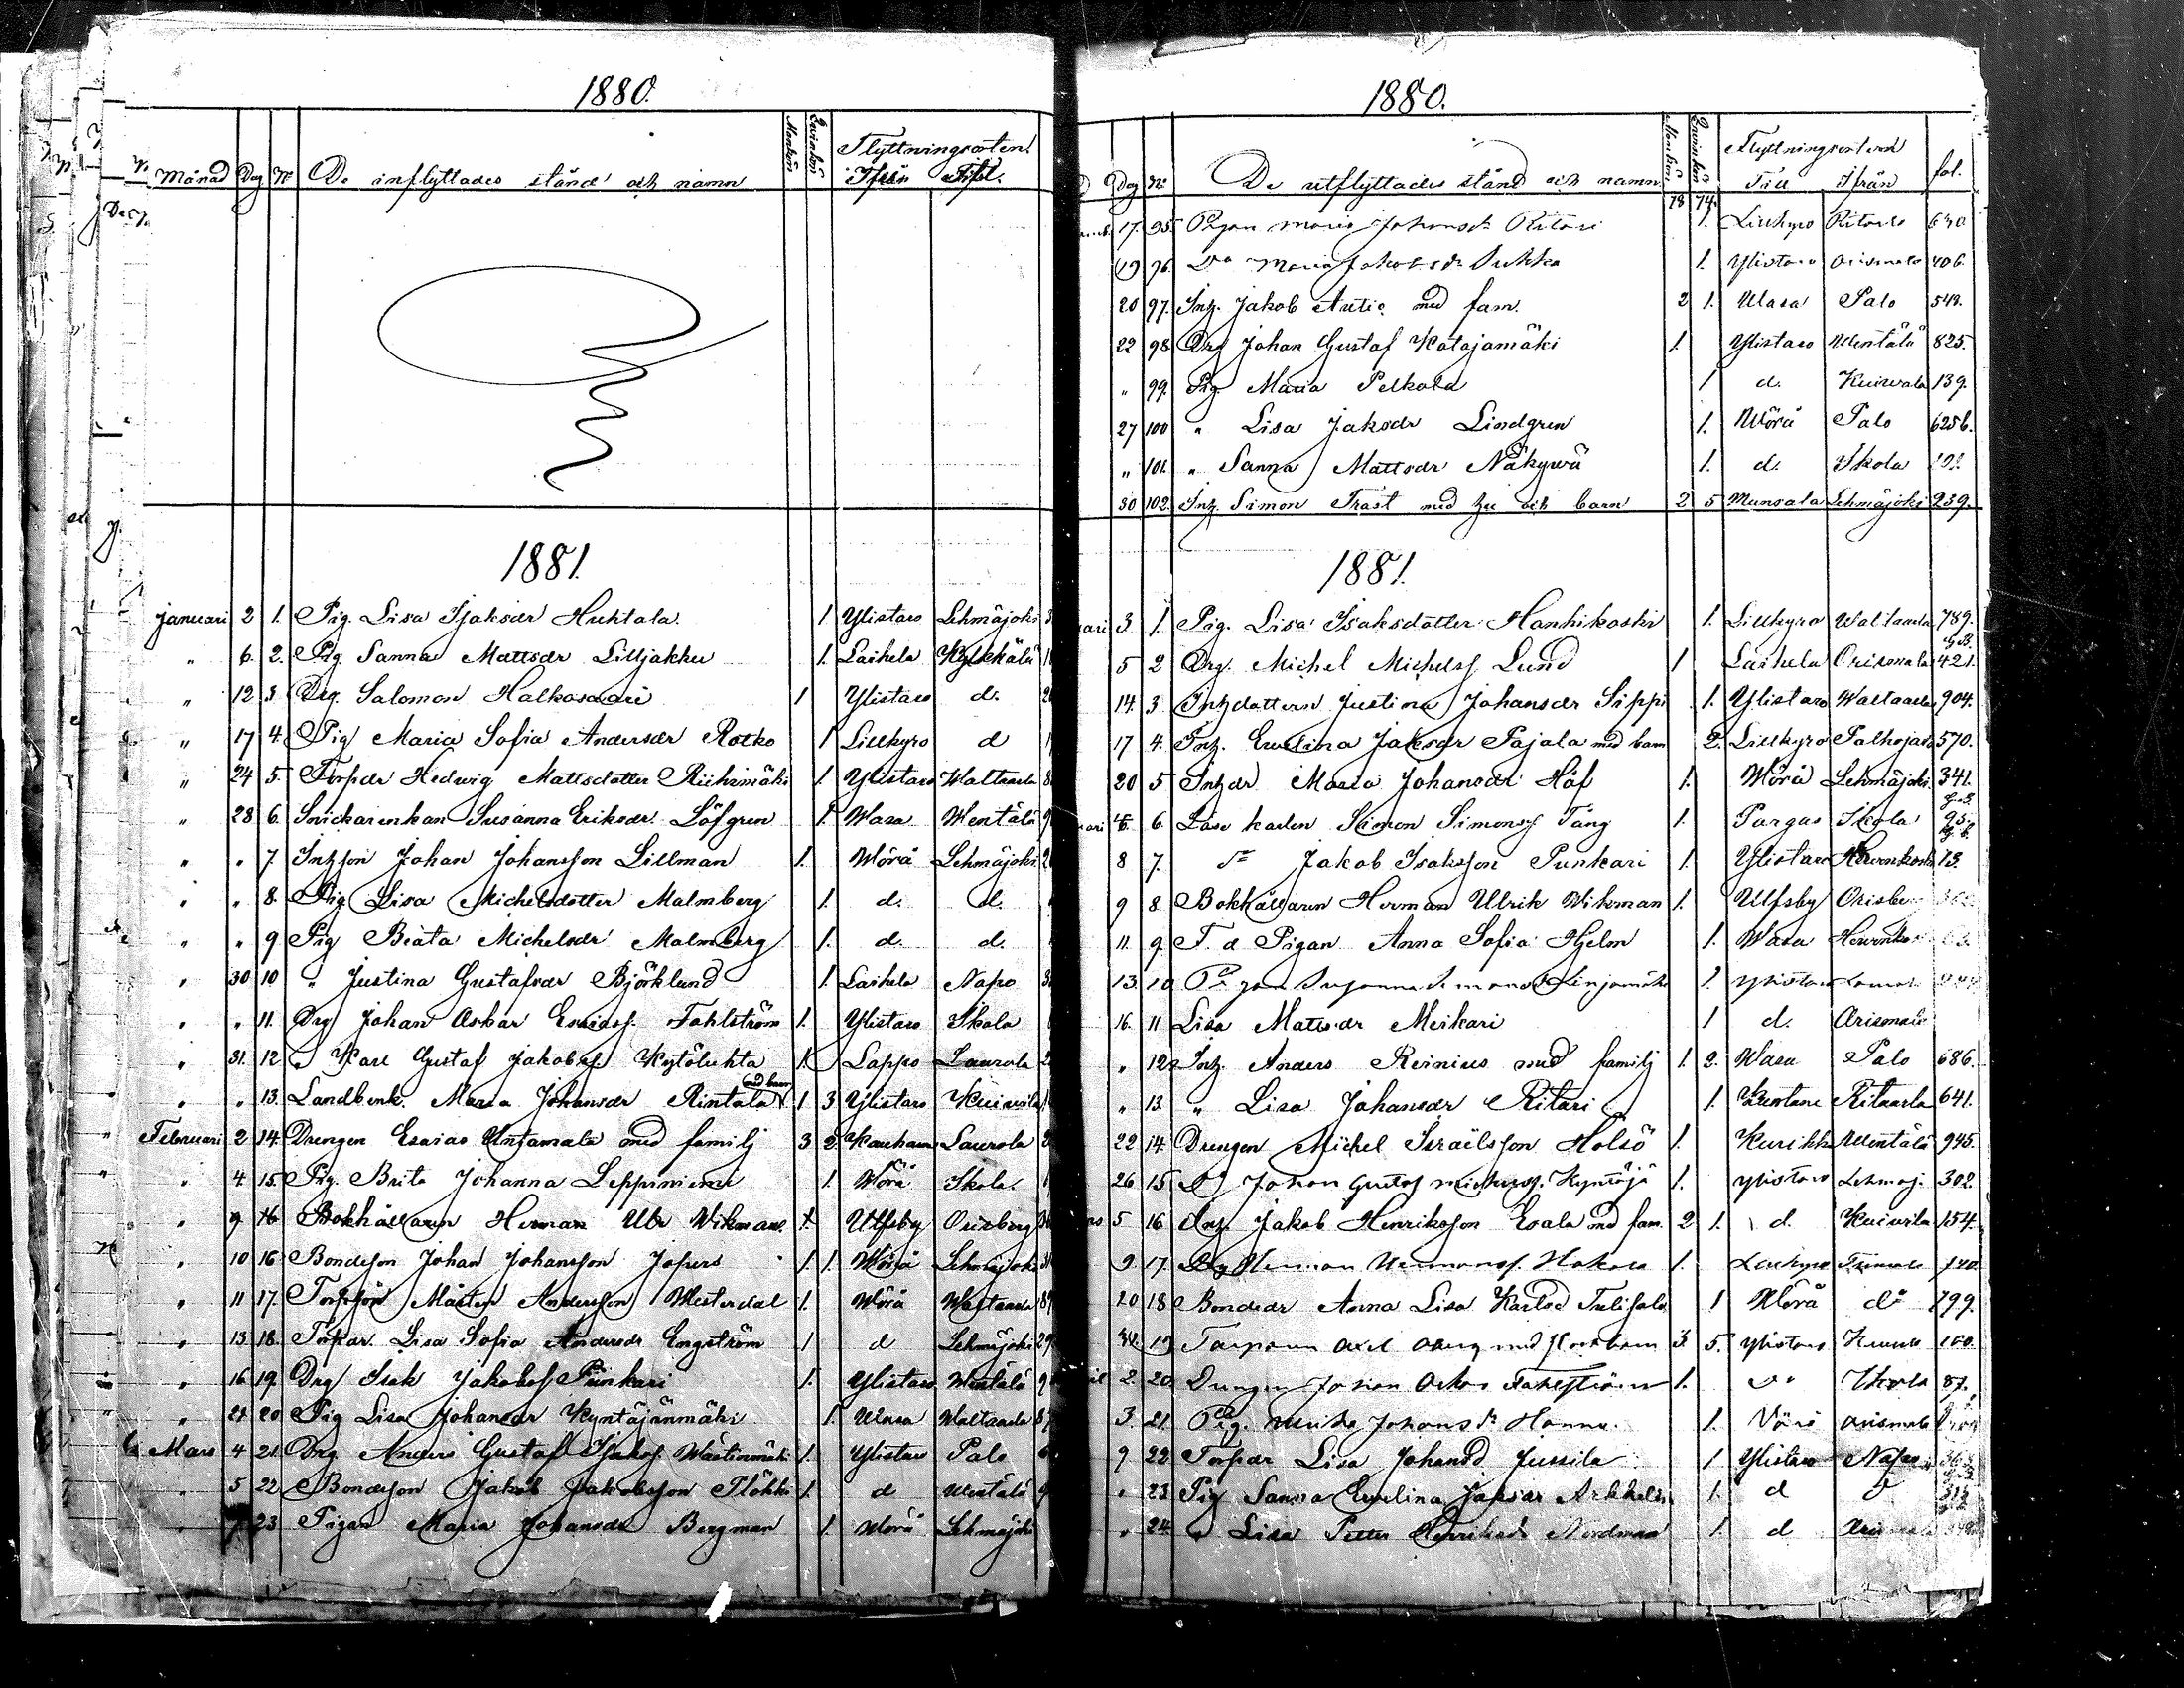 1880.
Månad Dag № De inflyttades stånd och namn Mankön Qvinkön Flyttningsorten
Ifrån Till
1881.
Januari 2 1. Pig. Lisa Isaksdr Huhtala. 1 Ylistaro Lehmäjoki
" 6. 2. Pig. Sanna Mattsdr Lilljakku 1. Laihela Kylkkälä
" 12 3. Drg. Salomon Halkosaari 1 Ylistaro d:
" 17 4. Pig Maria Sofia Andersdr Rotko 1 Lillkyro d
" 24 5. Torpdr Hedwig Mattsdotter Riihimäki 1. Ylistaro Waltaala
" 28 6. Snickarenkan Susanna Eriksdr. Löfgren 1. Wasa Wentälä
" " 7. Inhson Johan Johansson Lillman 1. Wörå Lehmäjoki
" " 8. Pig Lisa Michelsdotter Malmberg 1. d. d.
" " 9. Pig Beata Michelsdr Malmberg 1. d. d.
" 30 10 " Justina Gustafsdr Björklund 1. Laihela Napo
" " 11. Drg Johan Oskar Esaiass. Fahlström 1. Ylistaro Ikola
" 31. 12 " Karl Gustaf Jakobss. Kytöluhta 1. Lappo Laurola
" " 13. Landbenk. Maria Johansdr Rintala med barn 1 3 Ylistaro Kuivila
Februari 2 14. Drengen Esaias Untamala med familj 3 2 Kauhava Laurola
" 4. 15. Pig. Brita Johanna Leppiniemi 1. Wörå Ikola.
" 9 16 Bokhållaren Herman Ulr Wikman. 1. Ulfsby Orisberg
" 10 16 Bondeson Johan Johansson Jofers 1. 1. Wörå Lehmäjoki
" 11 17. Torpson Mårten Andersson Westerdal 1. Wörå Waltaala
" 13 18. Torpdr. Lisa Sofia Andersdr Engström 1 d Lehmäjoki
" 16 19. Drg Isak Jakobss Punkari 1. Ylistaro Wentälä
" 21 20 Pig Lisa Johansdr Kyntäjänmäki 1. Wasa Waltaala
Mars 4 21. Drg. Anders Gustaf Isakss. Wästinmäki 1. Ylistaro Palo
" 5 22 Bondeson Jakob Jakobsson Plökki 1. d Wentälä
23 Pigan Maria Johansdr Bergman 1. Wörå Lehmäjoki
1880.
Dag № De utflyttades stånd och namn Mankön Qvinkön Flyttningsorten
Till Ifrån fol.
78 74.
17. 95. Pigan Maria Johansdr Ritari 1. Lillkyro Ritaala 640
19 96. Do Maria Jakobsdr Sukka 1. Ylistaro Orismala 406.
20 97. Inh. Jakob Antio med fam. 2 1. Wasa Palo 543.
22 98. Drg Johan Gustaf Katajamäki 1. Ylistaro Wentälä 825.
" 99. Pig. Maria Pelkola 1 d. Kuivala 139.
27 100 " Lisa Jaksdr Lindgren 1. Wörå Palo 625b.
" 101. " Sanna Mattsdr Näkywä 1. d. Ikola
30 102. Inh. Simon Trast med hu och barn 2 5 Munsala Lehmäjoki 239.
1881.
3 1. Pig. Lisa Isaksdotter Hanhikoski 1. Lillkyro Waltaala 789.
5 2 Drg. Michel Michelss Lund 1 Laihela Orismala 421.
14. 3 Inhdottern Justina Johansdr Sippi 1. Ylistaro Waltaala 904.
17 4. Inh. Ewelina Jaksdr Pajala med barn 2. Lillkyro Palhojais 570.
20 5 Inhdr Maria Johansdr Höf 1. Wörå Lehmäjoki 341.
6. Lösekarlen Simon Simonss Täng 1. Pargas Ikola 95.
8 7. do Jakob Isaksson Punkari 1. Ylistaro Hewonkoski 13.
9 8 Bokhållaren Herman Ulrik Wikman 1. Ulfsby Orisberg
11. 9 F. d Pigan Anna Sofia Hjelm 1. Wasa
13. 10 Pigan Susanna Simonsdr Linjamäki 1. Ylistaro
16. 11 Lisa Mattsdr Meikari 1 d. Orismala
" 12 Inh. Anders Reinius med familj 1. 2. Wasa Palo 686.
" 13. " Lisa Johansdr Ritari 1. Ritaala 641.
22 14. Drengen Michel Israëlsson Holsö 1. Kurikka Wentälä 945.
26 15 Johan Gustaf Kyntäjä 1. Ylistaro Lehmäj. 302.
5 16 Inh. Jakob Henriksson Esala med fam. 2 1. d. Kuivila 154.
9 17. Drg Herman Hermanss. Hakola 1. 120
20 18 Bondedr Anna Lisa Karlsd Tulisalo 1 Wörå do 799.
19 Torparen Axel Åberg med 3 5. Ylistaro 160.
2. 20 Drengen Johan Oskar Fahlström 1. do Ikola 87.
3. 21. Pig. Johansdr Hannu. 1. Vörå Orismala
9 22 Torpdr Lisa Johansd Jussila 1 Ylistaro Napo
" 23 Pig Sanna Ewelina 1. d
" 24 " Lisa Nordman 1. d